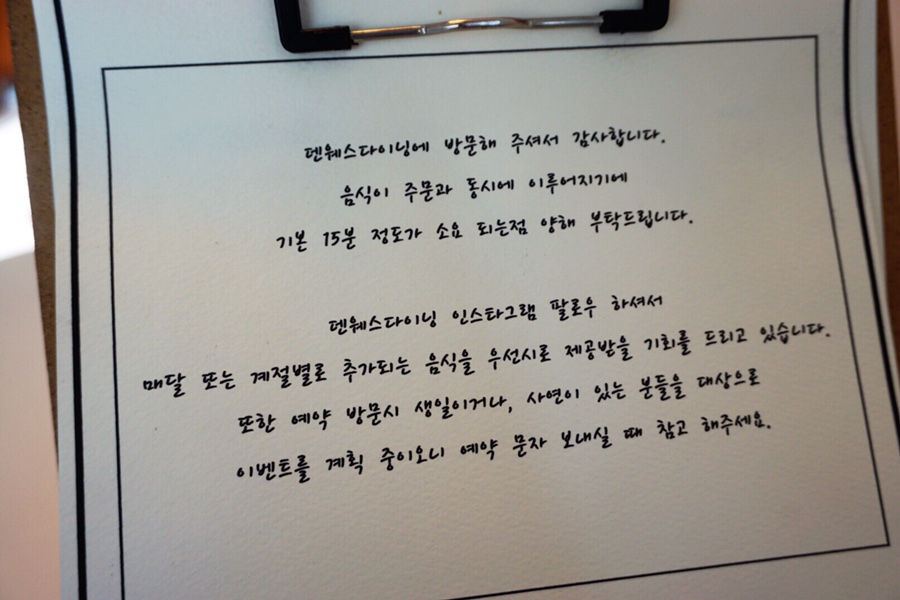 덴웨스다이닝에 방문해 주셔서 감사합니다.
음식이 주문과 동시에 이루어지기에
기본 15분 정도가 소요 되는점 양해 부탁드립니다.
덴웨스다이닝 인스타그램 팔로우 하셔서
매달 또는 계절별로 추가되는 음식을 우선시로 제공받을 기회를 드리고 있습니다.
또한 예약 방문시 생일이거나, 사연이 있는 분들을 대상으로
이벤트를 계획 중이오니 예약 문자 보내실 때 참고 해주세요.